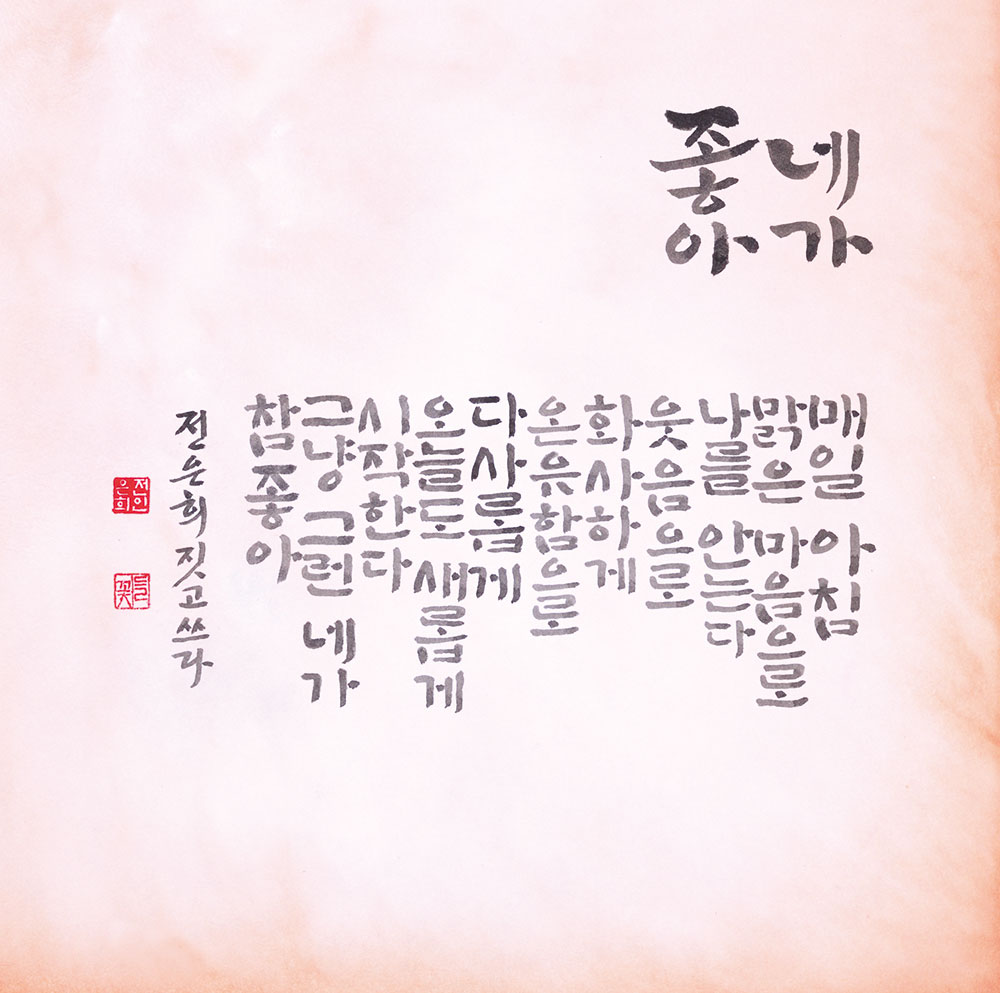 네가
좋아
매일 아침
맑은 마음으로
나를 안는다
웃음으로
화사하게
온유함으로
다사롭게
오늘도 새롭게
시작한다
그냥 그런 네가
참 좋아
전은희 짓고 쓰다
전인
은희
들꽃